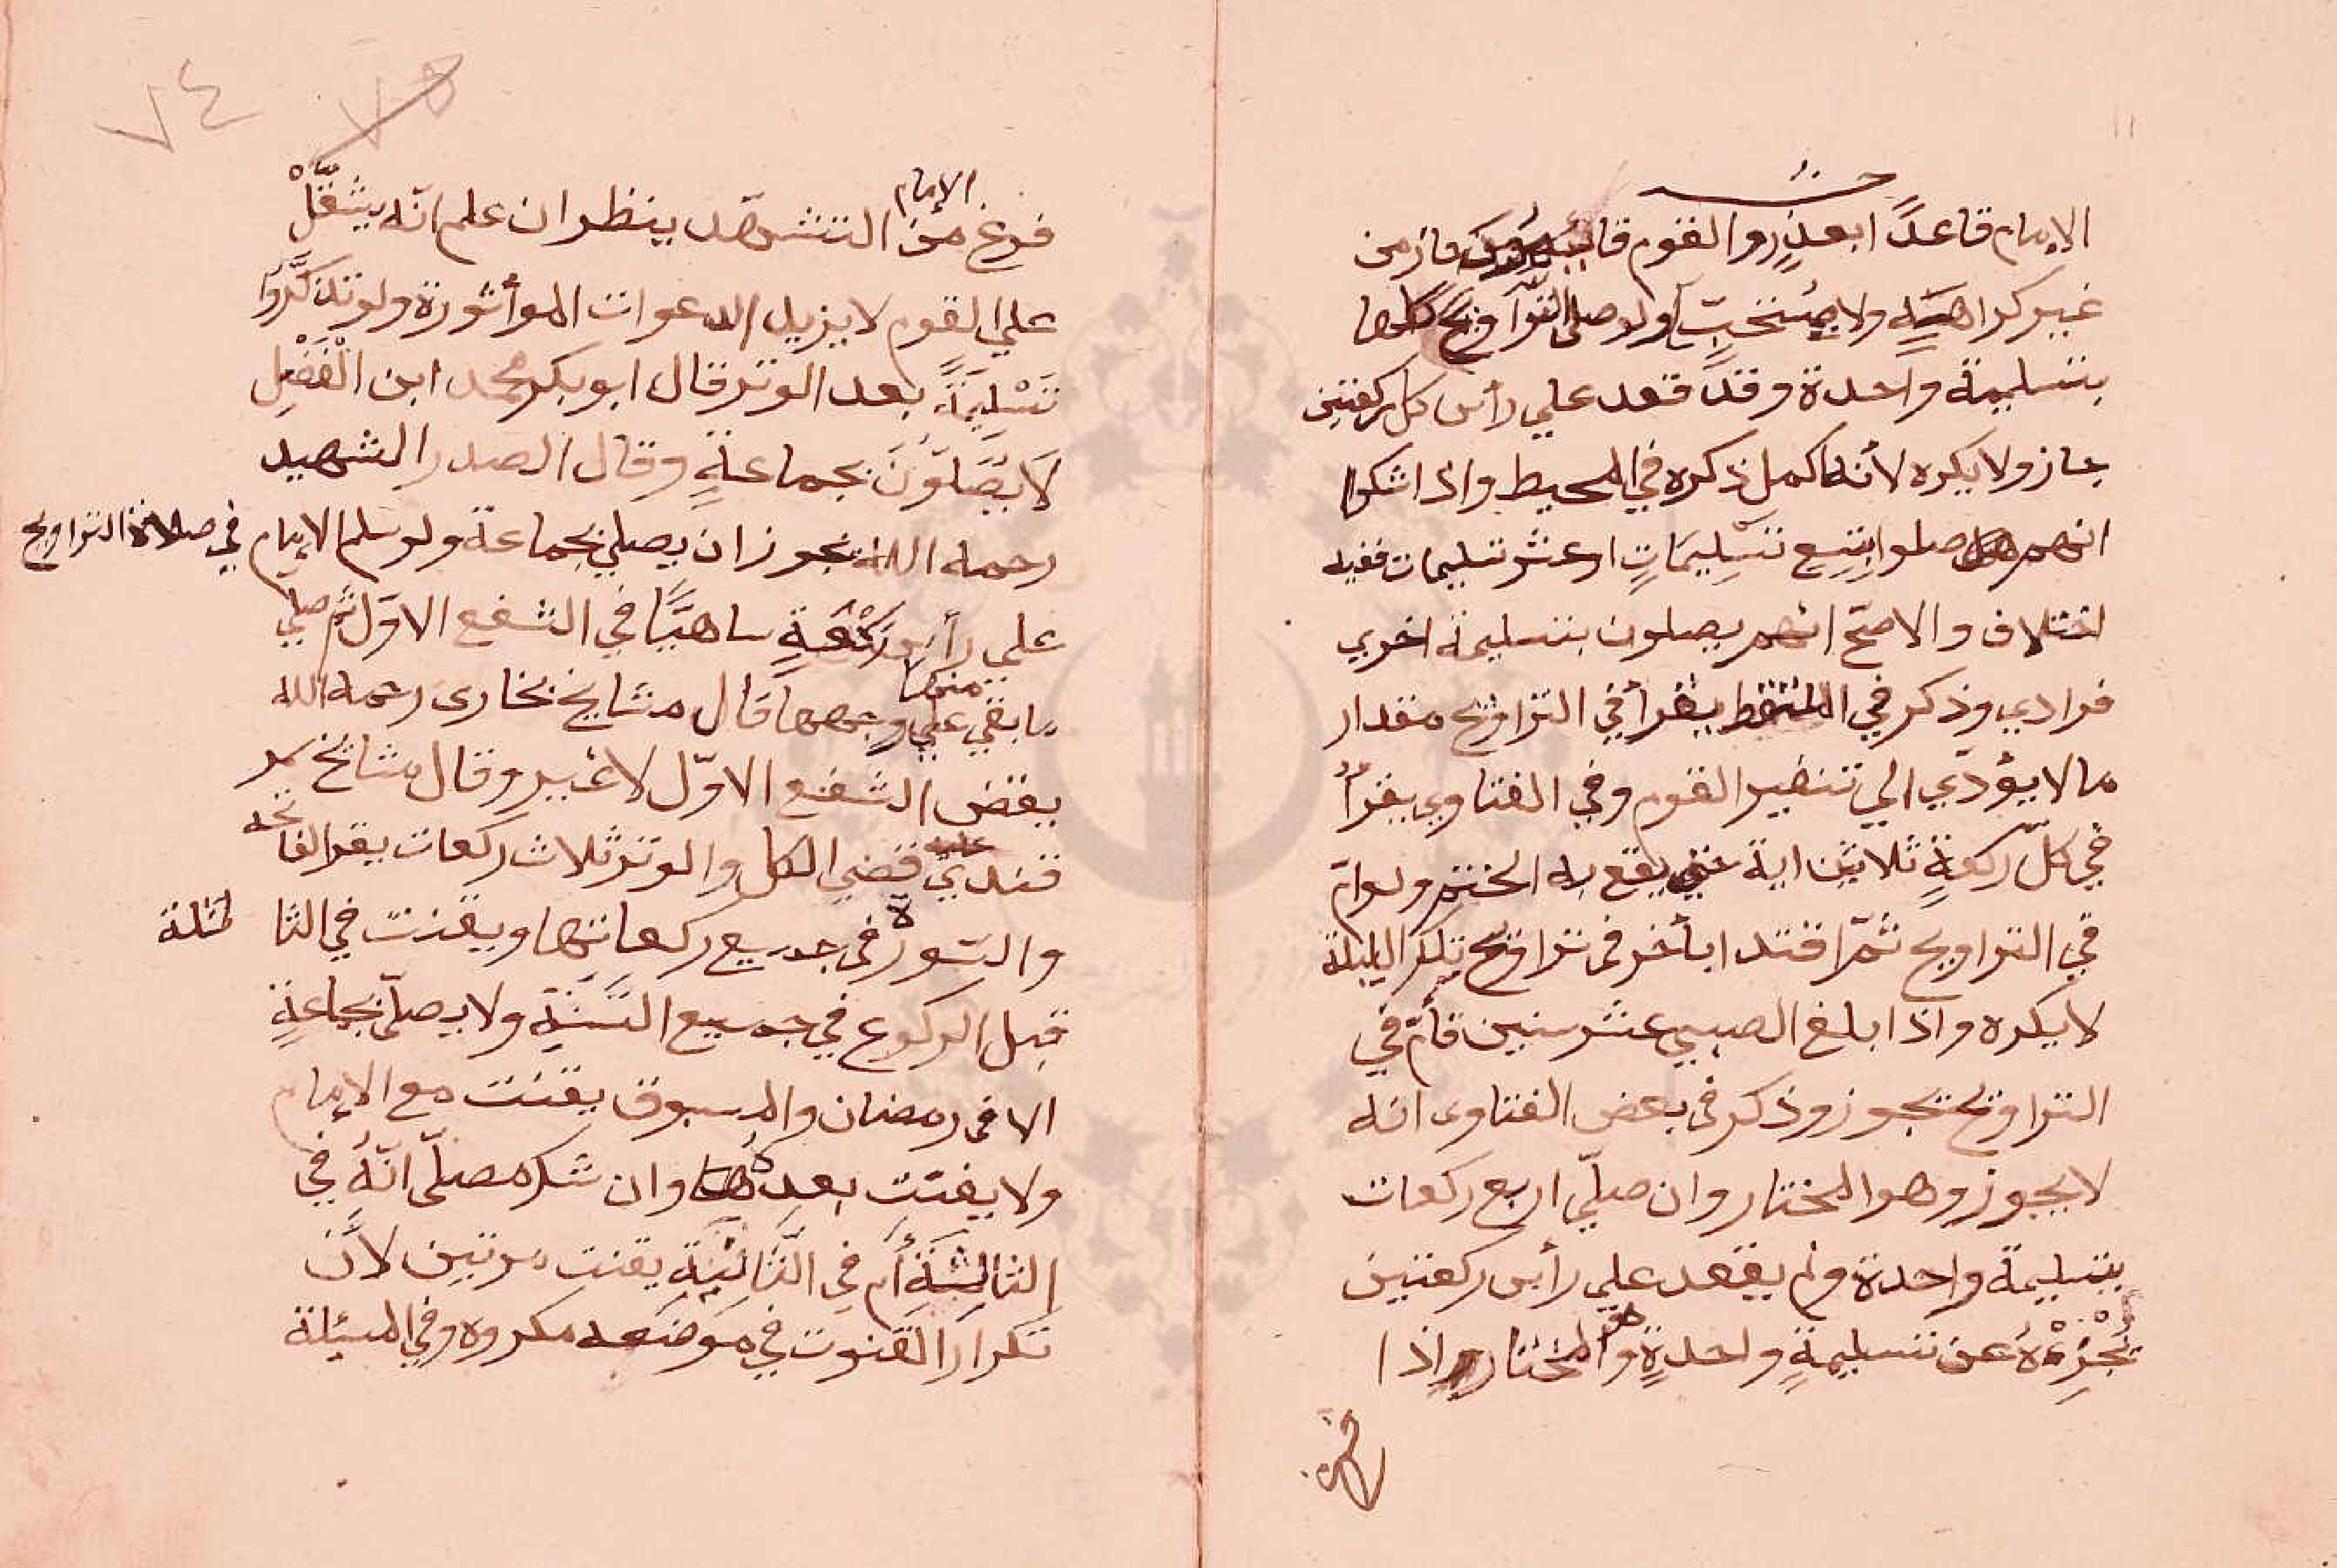 الإمام قاعدًا بعذرٍ والقوم قائمون جاز من
غير كراهية ولا ولو صلى التراويح كلها
بتسليمة واحدة وقد قعد علي رأس كل ركعتين
جاز ولا يكره لأنه اكمل ذكره في المحيط واذا شكوا
انهم صلوا بتسع تسليماتٍ او عشر تسليمات ففيه
اختلاف والاصحّ انهم يصلون بتسليمة اخري
فرادي وذكر في الملتقط يقرأ في التراويح مقدار
ما لا يؤدّي الي تنفير القوم وفي الفتاوي يقرأ
في كلّ ركعةٍ ثلاثين اية حتي يقع به الختم ولو امّ
في التراويح ثمّ اقتدا بأخر في تراويح تلك الليلة
لا يكره واذا بلغ الصبي عشر سنين فأمّ في
التراويح يجوز وذكر في بعض الفتاوى انه
لا يجوز وهو المختار وان صلّي اربع ركعات
بتسليمة واحدة ولم يقعد علي رأس ركعتين
تجزئه عن تسليمةٍ واحدةٍ وهو المختار واذا
فرغ
٧٤
٧٥
فرغ الإمام من التشهّد ينظر ان علم انّه يثقّل
علي القوم لا يزيل الدعوات المأثورة ولو تذكّروا
تسليمةً بعد الوتر قال ابو بكر محمد ابن الفضل
لا يصلّون بجماعةٍ وقال الصدر الشهيد
رحمه الله يجوز ان يصلي بجماعة ولو سلم الإمام في صلاة التراويح
علي رأس ركعةٍ ساهيًا في الشفع الاوّل ثم صلّي
ما بقي منها علي وجهها قال مشايخ بخارى رحمه الله
يقض الشفع الاوّل لا غير وقال مشايخ سمر
قندي عليه قضي الكل والوتر ثلاث ركعات يقر الفاتحه
والسّورة في جميع ركعاتها ويقنت في الثا لثة
قبل الركوع في جميع السّنة ولا يصلّي بجماعةٍ
الا في رمضان والمسبوق يقنت مع الإمام
ولا يقنت بعده وان شك مصلّي انّه في
الثالثة أم في الثّانية يقنت مرتين لأنّ
تكرار القنوت في موضعه مكروه وفي المسئلة